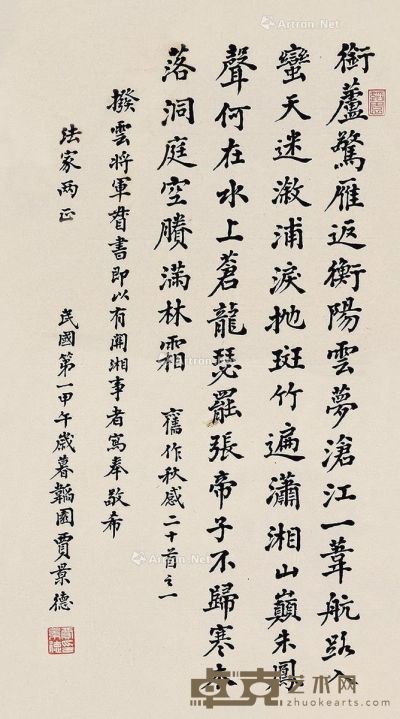 銜蘆驚雁返衡陽雲夢滄江一葦航路入
蠻天迷漵浦淚抛斑竹遍瀟湘山巔朱鳳
聲何在水上蒼龍瑟罷張帝子不歸寒木
落洞庭空賸滿林霜 舊作秋感二十首之一
撥雲將軍督書即以有關湘事者寫奉敬希
法家兩正
民國第一甲午歲暮韜園賈景德
卓克艺术网
www.zhuokearts.com